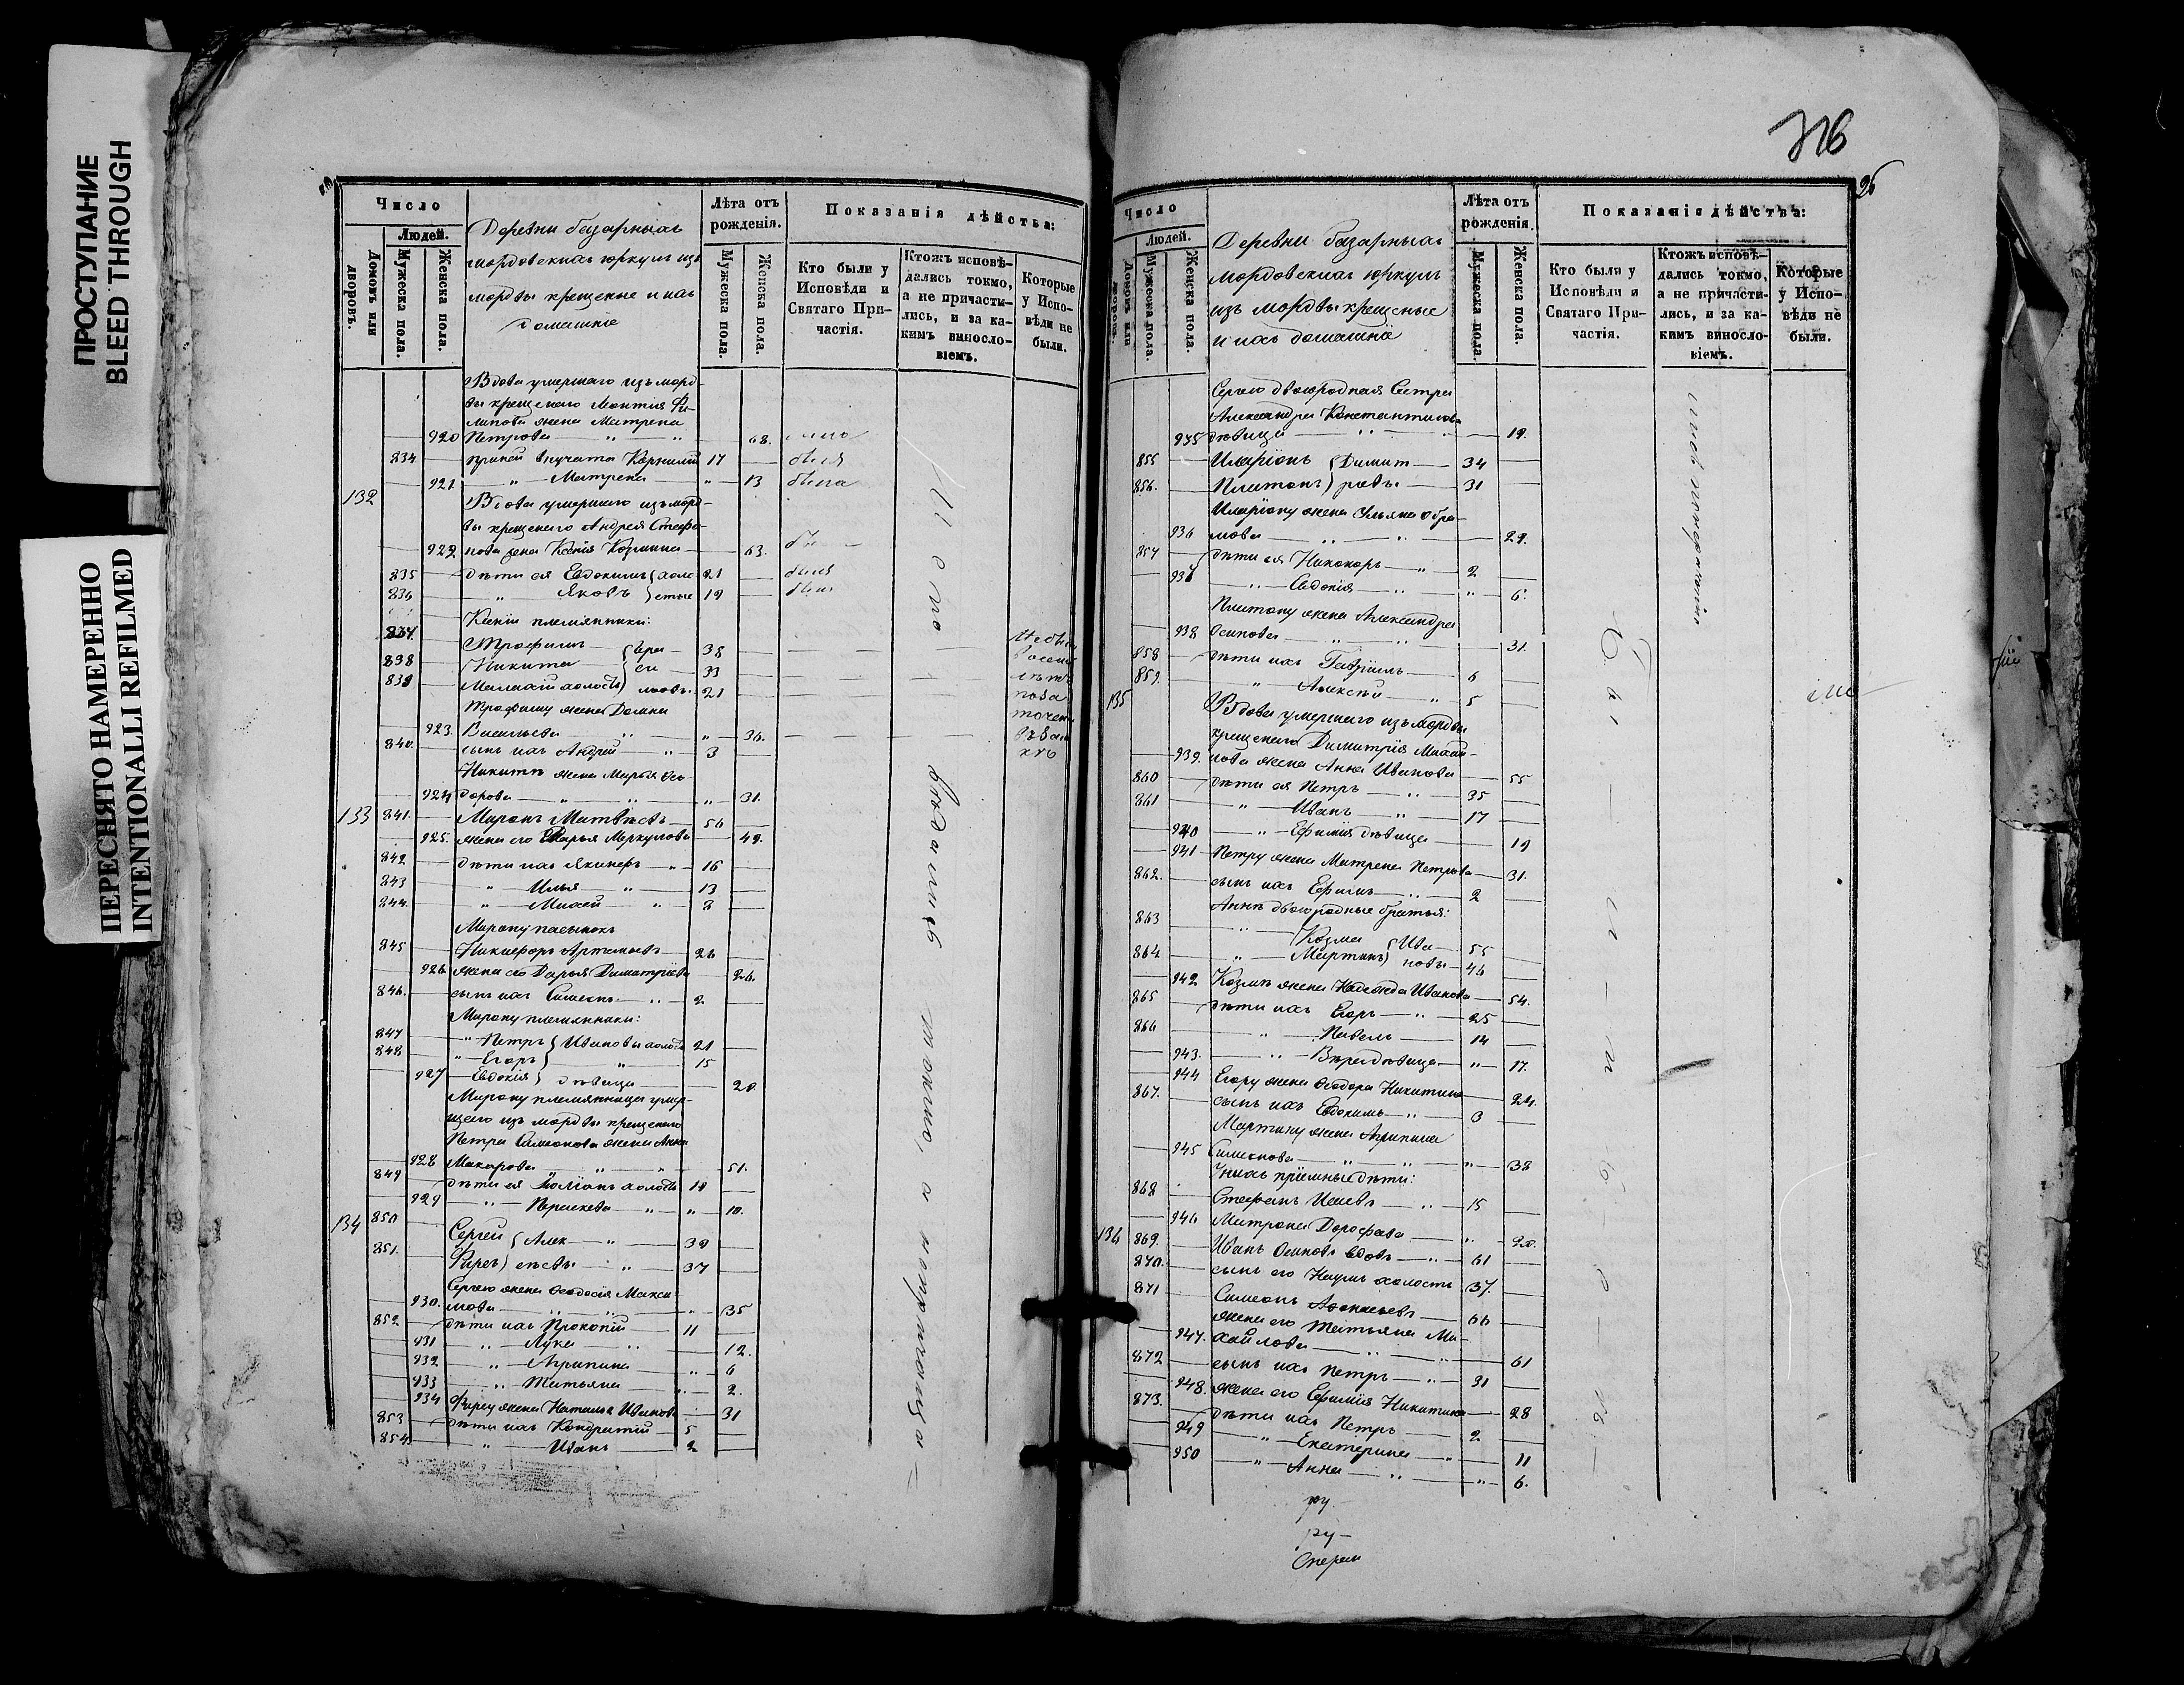 ПРОСТУПАНИЕ
BLEED THROUGH
ПЕРЕСНЯТО НАМЕРЕННО
INTENTIONALLI REFILMED
Число
Людей.
Домовъ или дворовъ.
Мужеска пола.
Женска пола.
Деревни базарныхъ
мордовскихъ юркулъ изъ
мордвы крещеные и ихъ
домашніе
Лѣта отъ рожденія.
Мужеска пола.
Женска пола.
Показанія дѣйства:
Кто были у Исповѣди и Святаго Причастія.
Ктожъ исповѣдались токмо, а не причастились, и за какимъ винословіемъ.
Которые у Исповѣди не были.
Вдова умершаго изъ морд-
вы крещенаго Леонтія Фи-
липова жена Матрена
920 Петрова 68.
834 Корнилій 17 былъ
921 Матрена 13 была
132 Вдова умершаго изъ морд-
вы крещенаго Андрея Стефа-
922 нова жена Ксенія Козмина 63.
835 дѣти ея Евдокимъ холо- 21 былъ
836 Яковъ стые 19 былъ
Ксеніи племянники:
837. Трофимъ 38
838 Никита 33
839 Малахій холостъ 21
Трофиму жена Домна
923. Васильева 36.
840. сынъ ихъ Андрей 3
Никитѣ жена Марья Ѳео-
924 дорова 31.
133 841. Миронъ Матвѣевъ 56
925. жена его Дарья Меркулова 49.
842 дѣти ихъ Якинфъ 16
843 Илья 13
844. Михей 2
Мирону пасынокъ
845 Никифоръ Артемьевъ 26
926. жена его Дарья Димитріева 26.
846. сынъ ихъ Симеонъ 2
Мирону племянники:
847 Петръ Ивановы холосты 21
848 Егоръ 15
927 Евдокія дѣвица 20.
Мирону племянница умер-
шаго изъ мордвы крещенаго
Петра Симеонова жена Анна
928 Макарова 51.
849 дѣти ея холостъ 19
929 Параскева 10.
134 850 Сергей Алек- 39
851. Фирсъ сѣевы 37
Сергею жена Ѳеодосія Макси-
930. мова 35
852 дѣти ихъ Прокопій 11
931 Лука 12.
932 Агрипина 6
933 Татьяна 2.
934 Фирсу жена Наталья Иванова 31
853 дѣти ихъ Кондратій 5
854 Иванъ 2
376
26
Число
Людей.
Домовъ или дворовъ.
Мужеска пола.
Женска пола.
Деревни базарныхъ
мордовскихъ юркулъ
изъ мордвы крещеные
и ихъ домашніе
Лѣта отъ рожденія.
Мужеска пола.
Женска пола.
Показанія дѣйства:
Кто были у Исповѣди и Святаго Причастія.
Ктожъ исповѣдались токмо, а не причастились, и за какимъ винословіемъ.
Которые у Исповѣди не были.
Сергею двоюродная сестра
Александра Константинова
935 дѣвица 19.
855 Иларіонъ Димит- 34
856. Платонъ ріевы 31
Иларіону жена Ульяна Абра-
936 мова 29.
857 дѣти ея Никаноръ 2
937 Евдокія 6.
Платону жена Александра
938 Осипова 31.
858 дѣти ихъ Гавріилъ 6
859. Алексей 5
135 Вдова умершаго изъ мордвы
крещенаго Димитрія Михай-
939. лова жена Анна Иванова 55
860 дѣти ея Петръ 35
861 Иванъ 17
940 Ефимія дѣвица 19
941 Петру жена Матрена Петрова 31.
862. сынъ ихъ Ефимъ 2
Аннѣ двоюродные братья:
863 Козма Ива- 55
864 Мартинъ новы 46
942 Козмѣ жена Надежда Иванова 54.
865 дѣти ихъ Егоръ 25
866 Павелъ 14
943. Вѣра дѣвица 17.
944 Егору жена Ѳеодора Никитина 24.
867. сынъ ихъ Евдокимъ 3
Мартину жена Агрипина
945 Симеонова 38
У нихъ пріемные дѣти:
868 Стефанъ 15
946 Матрона Дорофеева 20.
136 869. Иванъ Осиповъ вдовъ 61
870. сынъ его Наумъ холостъ 37.
871 Симеонъ Афонасьевъ 66
жена его Татьяна Ми-
947. хайлова 61
872 сынъ ихъ Петръ 31
948. жена его Ефимія Никитина 28
873. дѣти ихъ Петръ 2
949 Екатерина 11
950 Анна 6.